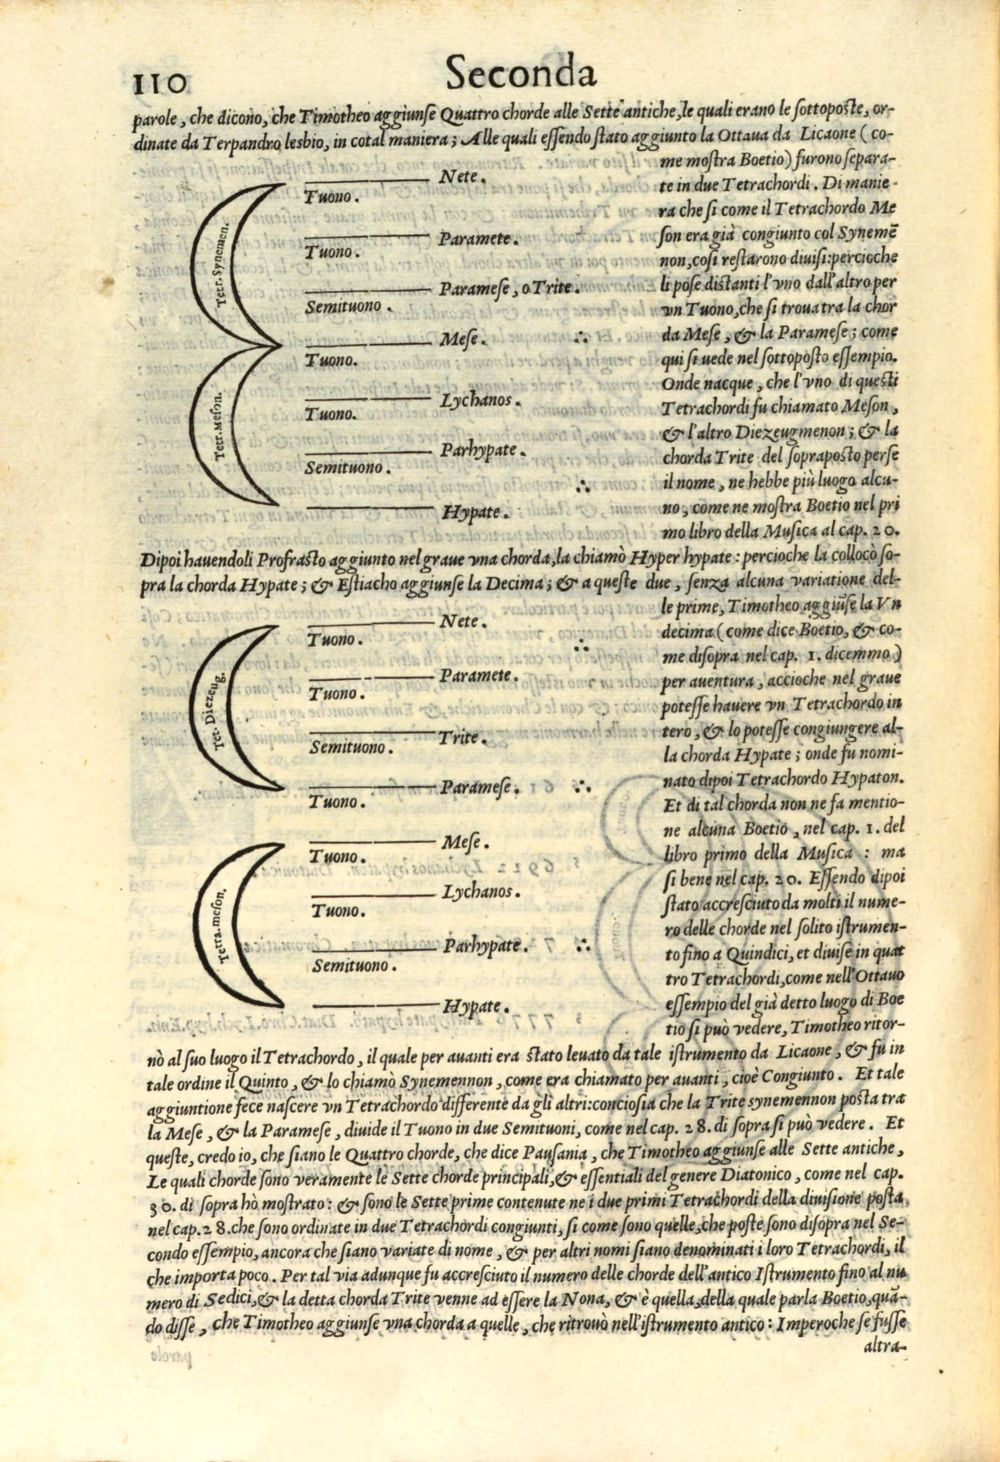 110
Seconda
parole, che dicono, che Timotheo aggiunſe Quattro chorde alle Sette antiche, le quali erano le ſottopoſte, or-
dinate da Terpandro lesbio, in cotal maniera; Alle quali eſſendo ſtato aggiunto la Ottaua da Licaone (co-
me moſtra Boetio) furono ſepara-
te in due Tetrachordi. Di manie-
ra che ſi come il Tetrachordo Me
ſon era già congiunto col Synemē
non, coſi reſtarono diuiſi: percioche
li poſe diſtanti l'vno dall'altro per
vn Tuono, che ſi troua tra la chor
da Meſe, & la Parameſe; come
qui ſi vede nel ſottopoſto eſſempio.
Onde nacque, che l'vno di queſti
Tetrachordi fu chiamato Meſon,
& l'altro Diezeugmenon; & la
chorda Trite del ſopraposto perſe
il nome, ne hebbe più luogo alcu-
no, come ne moſtra Boetio nel pri
mo libro della Muſica al cap. 20.
Tetr. Synemen.
Tetr. Meſon.
Nete.
Tuono.
Paramete.
Tuono.
Parameſe, o Trite.
Semituono.
Meſe.
Tuono.
Lychanos.
Tuono.
Parhypate.
Semituono.
Hypate.
Dipoi hauendoli Profraſto aggiunto nel graue vna chorda, la chiamò Hyper hypate: percioche la collocò ſo-
pra la chorda Hypate; & Eſtiacho aggiunſe la Decima; & a queſte due, ſenza alcuna variatione del-
le prime, Timotheo aggiūſe la Vn
decima (come dice Boetio, & co-
me diſopra nel cap. 1. dicemmo)
per auentura, accioche nel graue
poteſſe hauere vn Tetrachordo in
tero, & lo poteſſe congiungere al-
la chorda Hypate; onde fu nomi-
nato dipoi Tetrachordo Hypaton.
Et di tal chorda non ne fa mentio-
ne alcuna Boetio, nel cap. 1. del
libro primo della Muſica: ma
ſi bene nel cap. 20. Eſſendo dipoi
ſtato accreſciuto da molti il nume-
ro delle chorde nel ſolito iſtrumen-
to fino a Quindici, et diuiſe in quat
tro Tetrachordi, come nell'Ottauo
eſſempio del già detto luogo di Boe
tio ſi può vedere, Timotheo ritor-
Tet. Diezeug.
Tetra. meſon.
Nete.
Tuono.
Paramete.
Tuono.
Trite.
Semituono.
Parameſe.
Tuono.
Meſe.
Tuono.
Lychanos.
Tuono.
Parhypate.
Semituono.
Hypate.
nò al ſuo luogo il Tetrachordo, il quale per auanti era ſtato leuato da tale iſtrumento da Licaone, & fu in
tale ordine il Quinto, & lo chiamò Synemennon, come era chiamato per auanti, cioè Congiunto. Et tale
aggiuntione fece naſcere vn Tetrachordo differente da gli altri: conciosia che la Trite synemennon poſta tra
la Meſe, & la Parameſe, diuide il Tuono in due Semituoni, come nel cap. 28. di ſopra ſi può vedere. Et
queſte, credo io, che ſiano le Quattro chorde, che dice Pauſania, che Timotheo aggiunſe alle Sette antiche,
Le quali chorde ſono veramente le Sette chorde principali, & eſſentiali del genere Diatonico, come nel cap.
30. di ſopra hò moſtrato: & ſono le Sette prime contenute ne i due primi Tetrachordi della diuiſione poſta
nel cap. 28. che ſono ordinate in due Tetrachordi congiunti, ſi come ſono quelle, che poſte ſono diſopra nel Se-
condo eſſempio, ancora che ſiano variate di nome, & per altri nomi ſiano denominati i loro Tetrachordi, il
che importa poco. Per tal via adunque fu accreſciuto il numero delle chorde dell'antico Iſtrumento fino al nu
mero di Sedici, & la detta chorda Trite venne ad eſſere la Nona, & è quella, della quale parla Boetio, quā-
do diſſe, che Timotheo aggiunſe vna chorda a quelle, che ritrouò nell'iſtrumento antico: Imperoche ſe fuſſe
altra-